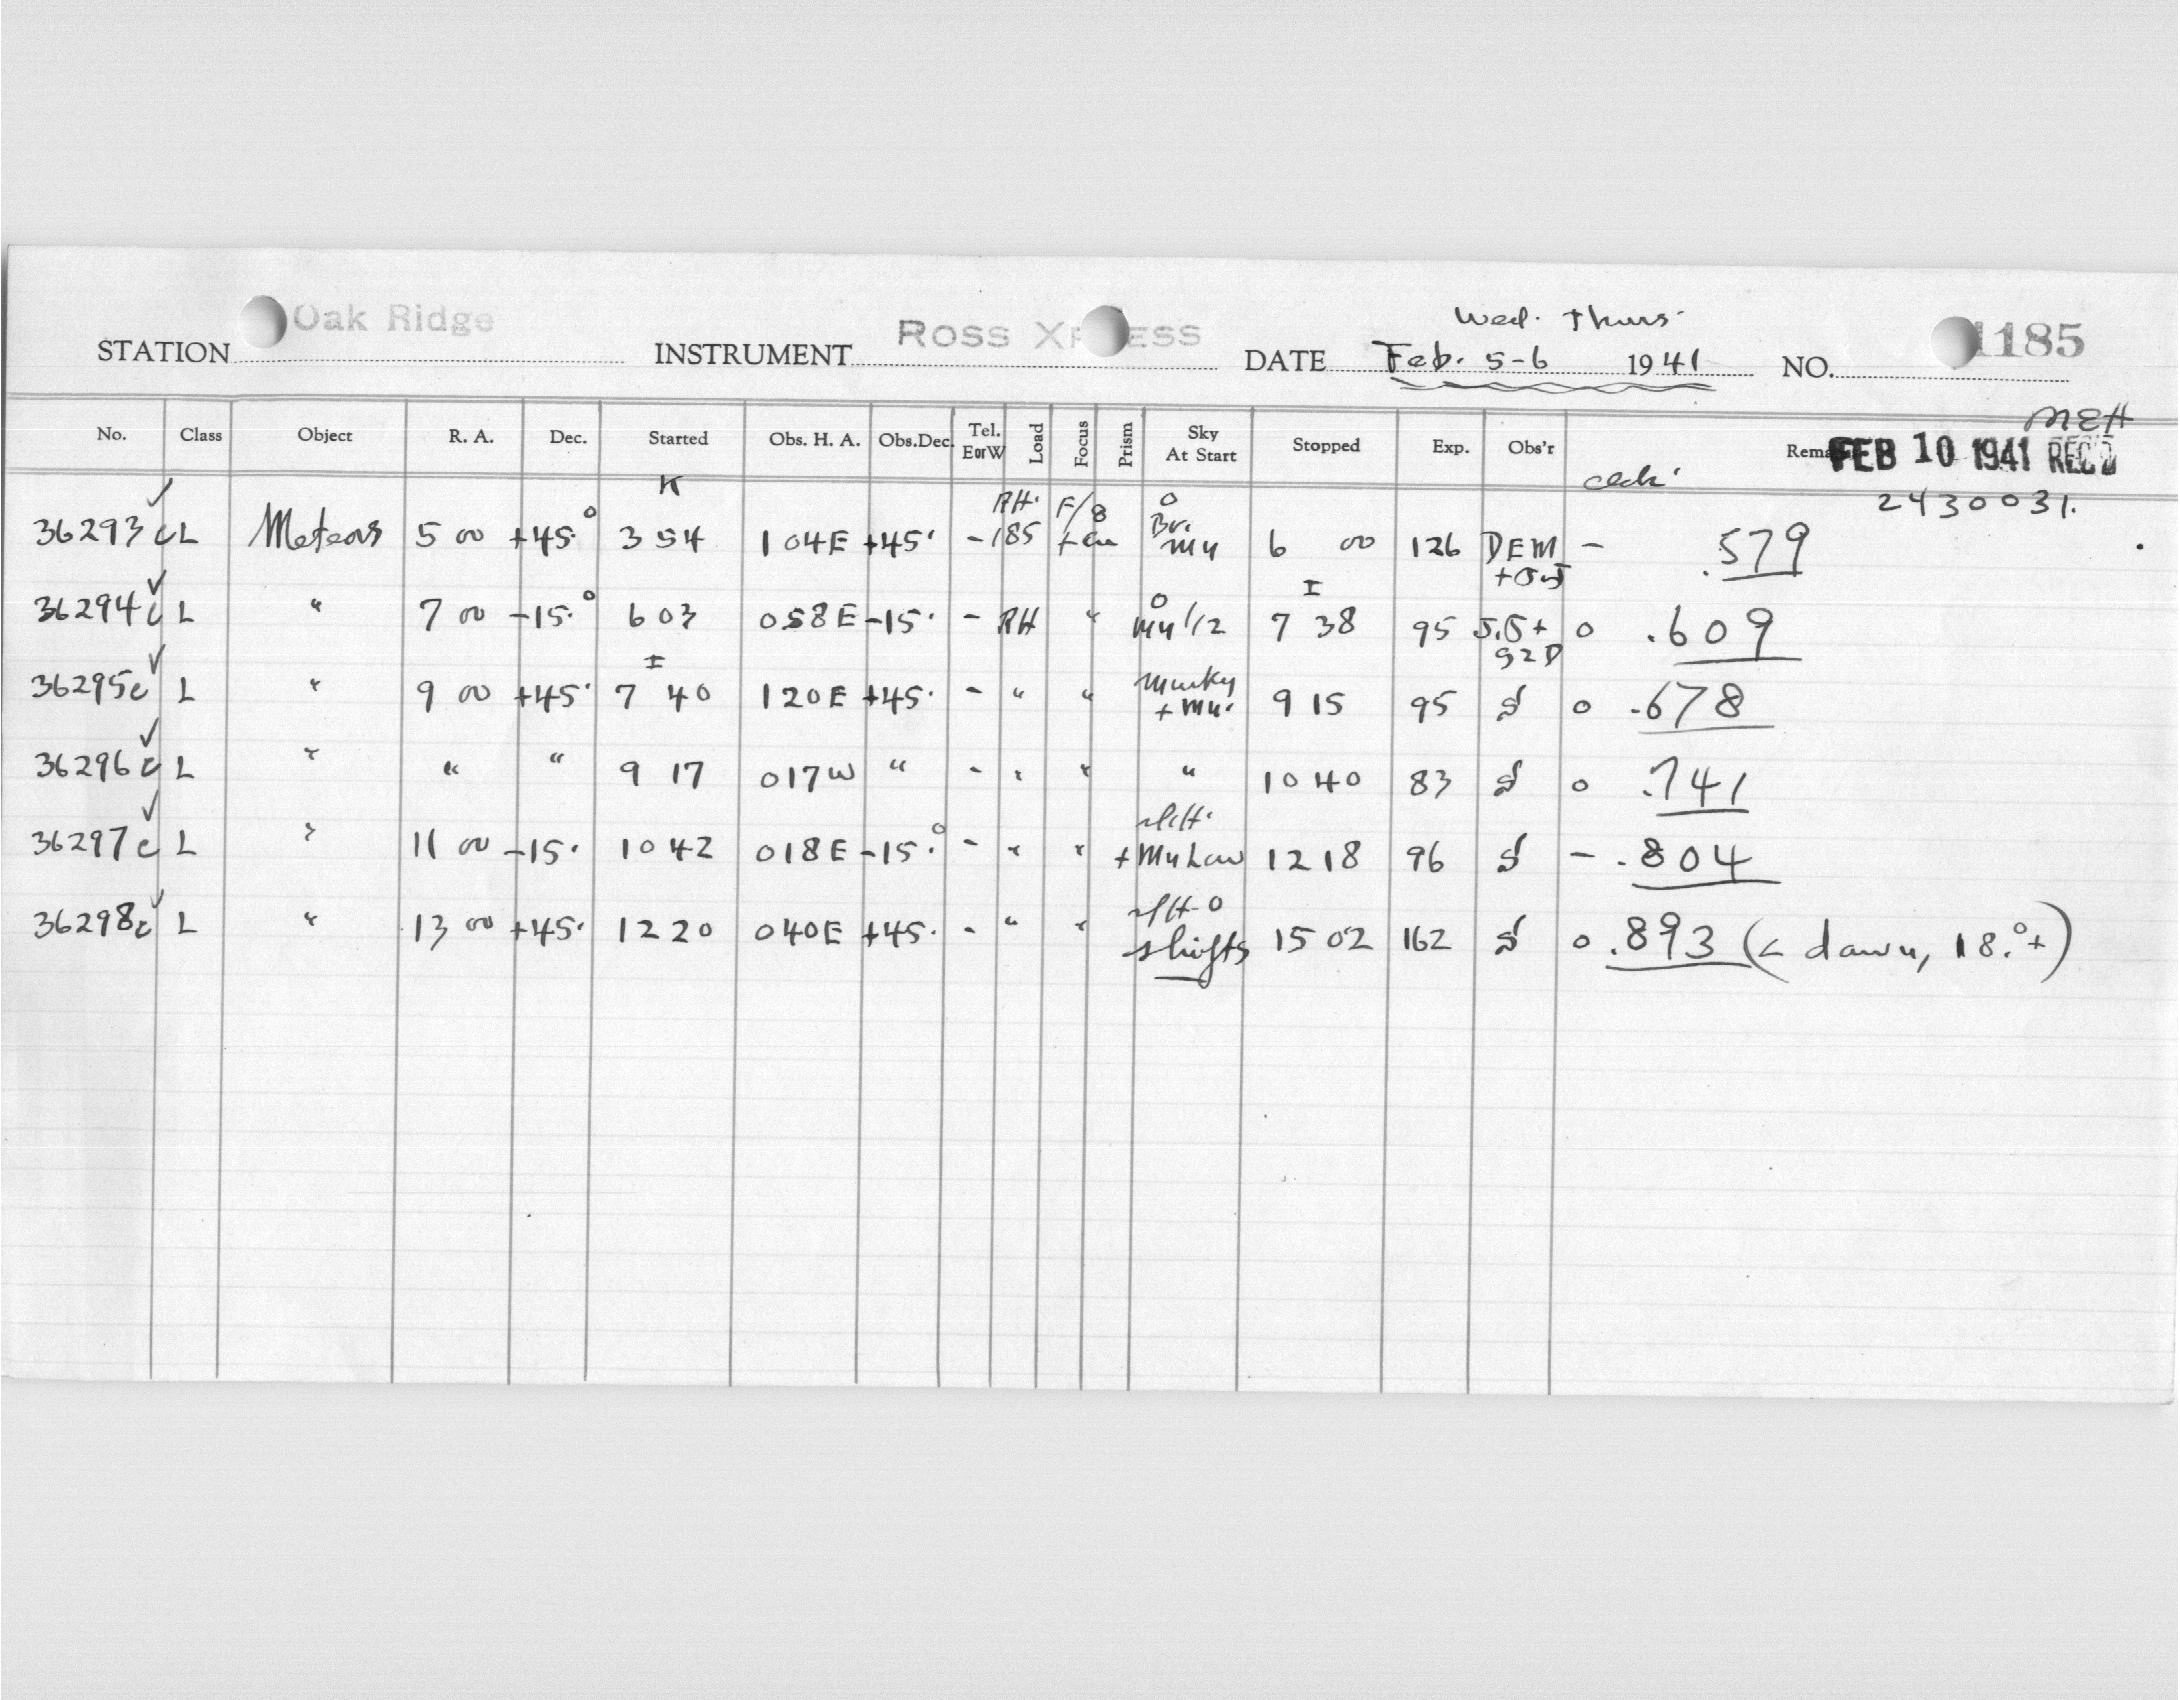 Wed. Thurs.
STATION Oak Ridge INSTRUMENT ROSS XPRESS DATE Feb. 5-6 1941 NO. 1185
MEH
No. Class Object R. A. Dec. Started Obs. H. A. Obs.Dec. Tel. EorW Load Focus Prism Sky At Start Stopped Exp. Obs'r FEB 10 1941 REC'D
K 2430031.
36293c L Meteors 5 00 +45.° 3 54 1 04E +45. - RH. 185 F/8 Br. 6 00 126 DEM - .579
I
36294c L " 7 00 -15.° 6 03 0 58E -15. - RH " 7 38 95 0 .609
I
36295c L " 9 00 +45. 7 40 1 20E +45. - " " Murky 9 15 95 S 0 .678
36296c L " " " 9 17 0 17W " - " " " 10 40 83 S 0 .741
36297c L " 11 00 -15. 10 42 0 18E -15.° - " " 12 18 96 S - .804
36298c L " 13 00 +45. 12 20 0 40E +45. - " " shifts 15 02 162 S 0 .893 (< dawn, 18.°+)